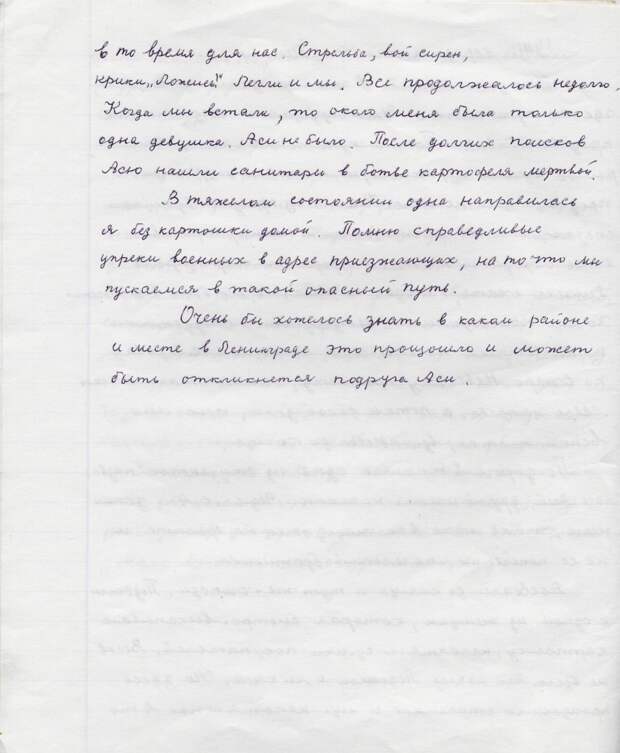 в то время для нас. Стрельба, вой сирен,
крики „Ложись!" Легли и мы. Все продолжалось недолго.
Когда мы встали, то около меня была только
одна девушка. Аси не было. После долгих поисков
Асю нашли санитары в ботве картофеля мертвой.
В тяжелом состоянии одна направилась
я без картошки домой. Помню справедливые
упреки военных в адрес приезжающих, на то что мы
пускаемся в такой опасный путь.
Очень бы хотелось знать в каком районе
и месте в Ленинграде это произошло и может
быть откликнется подруга Аси.